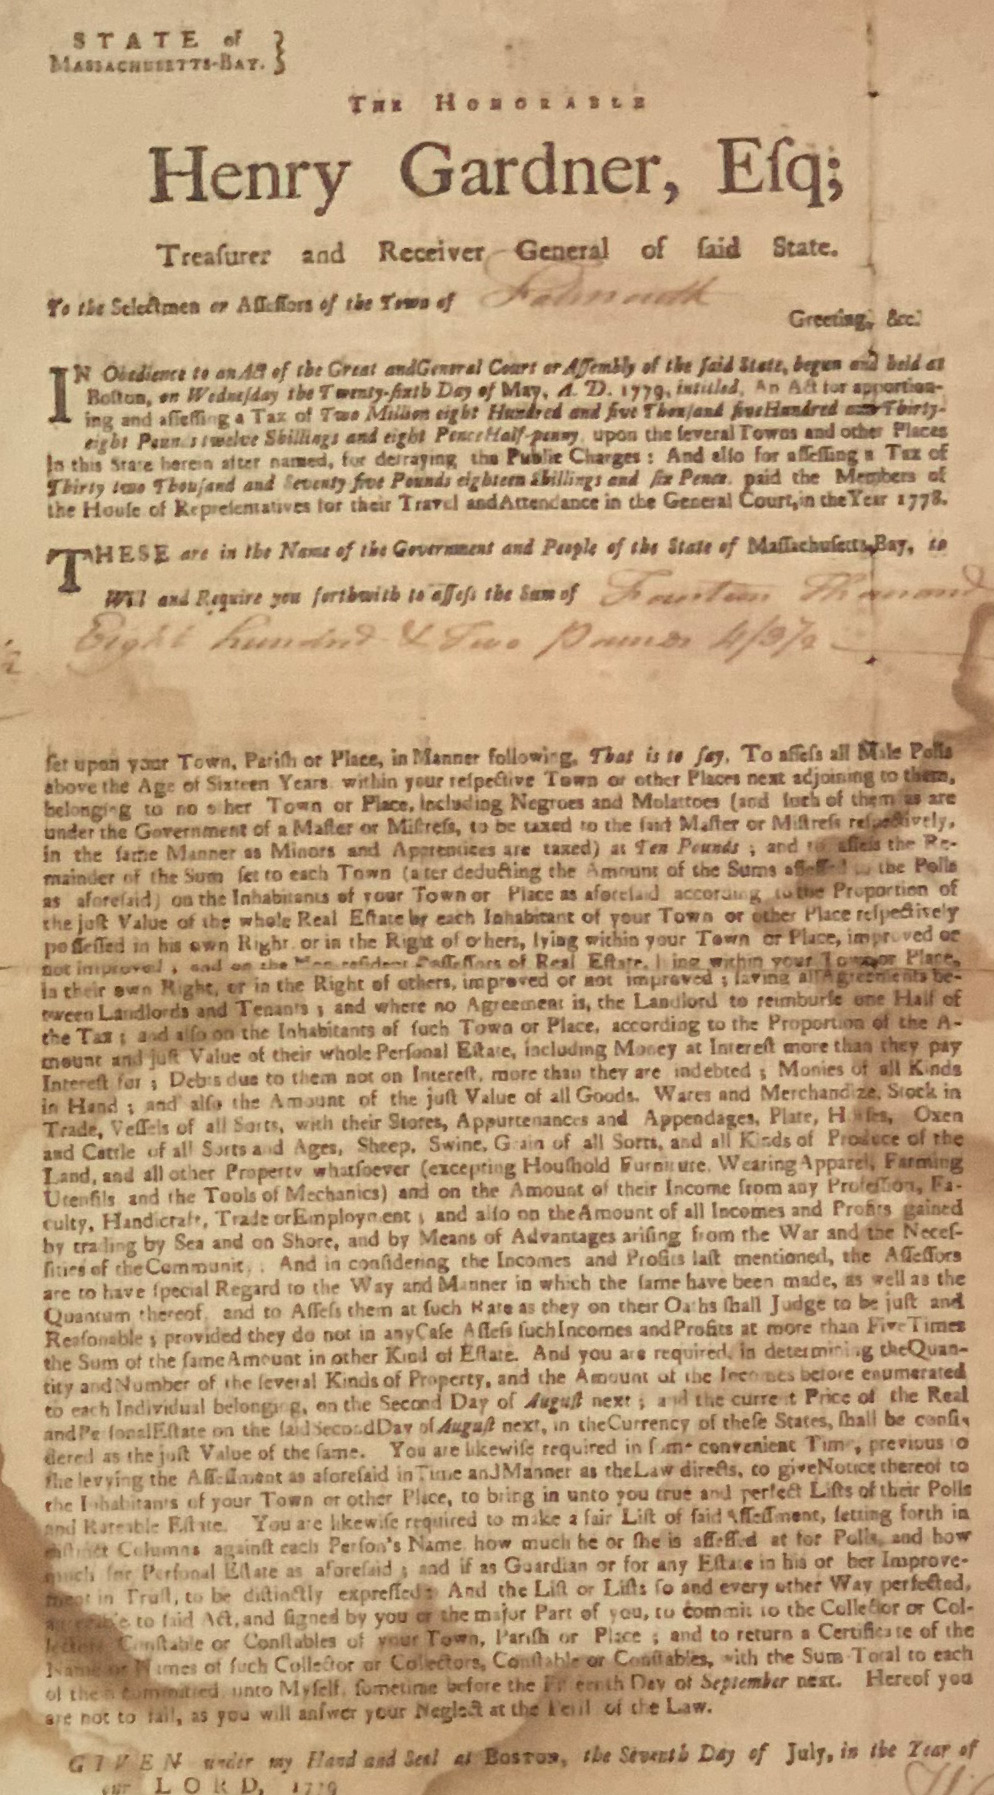 STATE of
MASSACHUSETTS-BAY. }
THE HONORABLE
Henry Gardner, Eſq;
Treaſurer and Receiver General of ſaid State.
To the Selectmen or Aſſeſſors of the Town of Falmouth
Greeting, &c.
IN Obedience to an Act of the Great and General Court or Aſſembly of the ſaid State, begun and held at
Boſton, on Wedneſday the Twenty-ſixth Day of May, A. D. 1779, intitled, An Act for apportion-
ing and aſſeſſing a Tax of Two Million eight Hundred and five Thouſand five Hundred and Thirty-
eight Pounds twelve Shillings and eight Pence Half-penny, upon the ſeveral Towns and other Places
in this State herein after named, for defraying the Public Charges : And alſo for aſſeſſing a Tax of
Thirty two Thouſand and Seventy five Pounds eighteen Shillings and ſix Pence, paid the Members of
the Houſe of Repreſentatives for their Travel and Attendance in the General Court, in the Year 1778.
THESE are in the Name of the Government and People of the State of Maſſachuſetts-Bay, to
Will and Require you forthwith to aſſeſs the Sum of Fourteen Thousand
Eight hundred & Two Pounds 4/3½
ſet upon your Town, Pariſh or Place, in Manner following, That is to ſay, To aſſeſs all Male Polls
above the Age of Sixteen Years within your reſpective Town or other Places next adjoining to them,
belonging to no other Town or Place, including Negroes and Molattoes (and ſuch of them as are
under the Government of a Maſter or Miſtreſs, to be taxed to the ſaid Maſter or Miſtreſs reſpectively,
in the ſame Manner as Minors and Apprentices are taxed) at Ten Pounds ; and to aſſeſs the Re-
mainder of the Sum ſet to each Town (after deducting the Amount of the Sums aſſeſſed to the Polls
as aforeſaid) on the Inhabitants of your Town or Place as aforeſaid according to the Proportion of
the juſt Value of the whole Real Eſtate by each Inhabitant of your Town or other Place reſpectively
poſſeſſed in his own Right, or in the Right of others, lying within your Town or Place, improved or
not improved ; and on the Non-reſident Poſſeſſors of Real Eſtate, lying within your Town or Place,
in their own Right, or in the Right of others, improved or not improved ; ſaving all Agreements be-
tween Landlords and Tenants ; and where no Agreement is, the Landlord to reimburſe one Half of
the Tax ; and alſo on the Inhabitants of ſuch Town or Place, according to the Proportion of the A-
mount and juſt Value of their whole Perſonal Eſtate, including Money at Intereſt more than they pay
Intereſt for ; Debts due to them not on Intereſt, more than they are indebted ; Monies of all Kinds
in Hand ; and alſo the Amount of the juſt Value of all Goods, Wares and Merchandize, Stock in
Trade, Veſſels of all Sorts, with their Stores, Appurtenances and Appendages, Plate, Horſes, Oxen
and Cattle of all Sorts and Ages, Sheep, Swine, Grain of all Sorts, and all Kinds of Produce of the
Land, and all other Property whatſoever (excepting Houſhold Furniture, Wearing Apparel, Farming
Utenſils and the Tools of Mechanics) and on the Amount of their Income from any Profeſſion, Fa-
culty, Handicraft, Trade or Employment ; and alſo on the Amount of all Incomes and Profits gained
by trading by Sea and on Shore, and by Means of Advantages ariſing from the War and the Neceſ-
ſities of the Community. : And in conſidering the Incomes and Profits laſt mentioned, the Aſſeſſors
are to have ſpecial Regard to the Way and Manner in which the ſame have been made, as well as the
Quantum thereof, and to Aſſeſs them at ſuch Rate as they on their Oaths ſhall Judge to be juſt and
Reaſonable ; provided they do not in any Caſe Aſſeſs ſuch Incomes and Profits at more than Five Times
the Sum of the ſame Amount in other Kind of Eſtate. And you are required, in determining the Quan-
tity and Number of the ſeveral Kinds of Property, and the Amount of the Incomes before enumerated
to each Individual belonging, on the Second Day of Auguſt next ; and the current Price of the Real
and Perſonal Eſtate on the ſaid Second Day of Auguſt next, in the Currency of theſe States, ſhall be conſi-
dered as the juſt Value of the ſame. You are likewiſe required in ſome convenient Time, previous to
the levying the Aſſeſſment as aforeſaid in Time and Manner as the Law directs, to give Notice thereof to
the Inhabitants of your Town or other Place, to bring in unto you true and perfect Liſts of their Polls
and Rateable Eſtate. You are likewiſe required to make a fair Liſt of ſaid Aſſeſſment, ſetting forth in
diſtinct Columns againſt each Perſon's Name, how much he or ſhe is aſſeſſed at for Polls, and how
much for Perſonal Eſtate as aforeſaid ; and if as Guardian or for any Eſtate in his or her Improve-
ment in Truſt, to be diſtinctly expreſſed : And the Liſt or Liſts ſo and every other Way perfected,
agreeable to ſaid Act, and ſigned by you or the major Part of you, to commit to the Collector or Col-
lectors, Conſtable or Conſtables of your Town, Pariſh or Place ; and to return a Certificate of the
Name or Names of ſuch Collector or Collectors, Conſtable or Conſtables, with the Sum Total to each
of them committed, unto Myſelf, ſometime before the Fifteenth Day of September next. Hereof you
are not to fail, as you will anſwer your Neglect at the Peril of the Law.
GIVEN under my Hand and Seal at BOSTON, the Seventh Day of July, in the Year of
our LORD, 1779